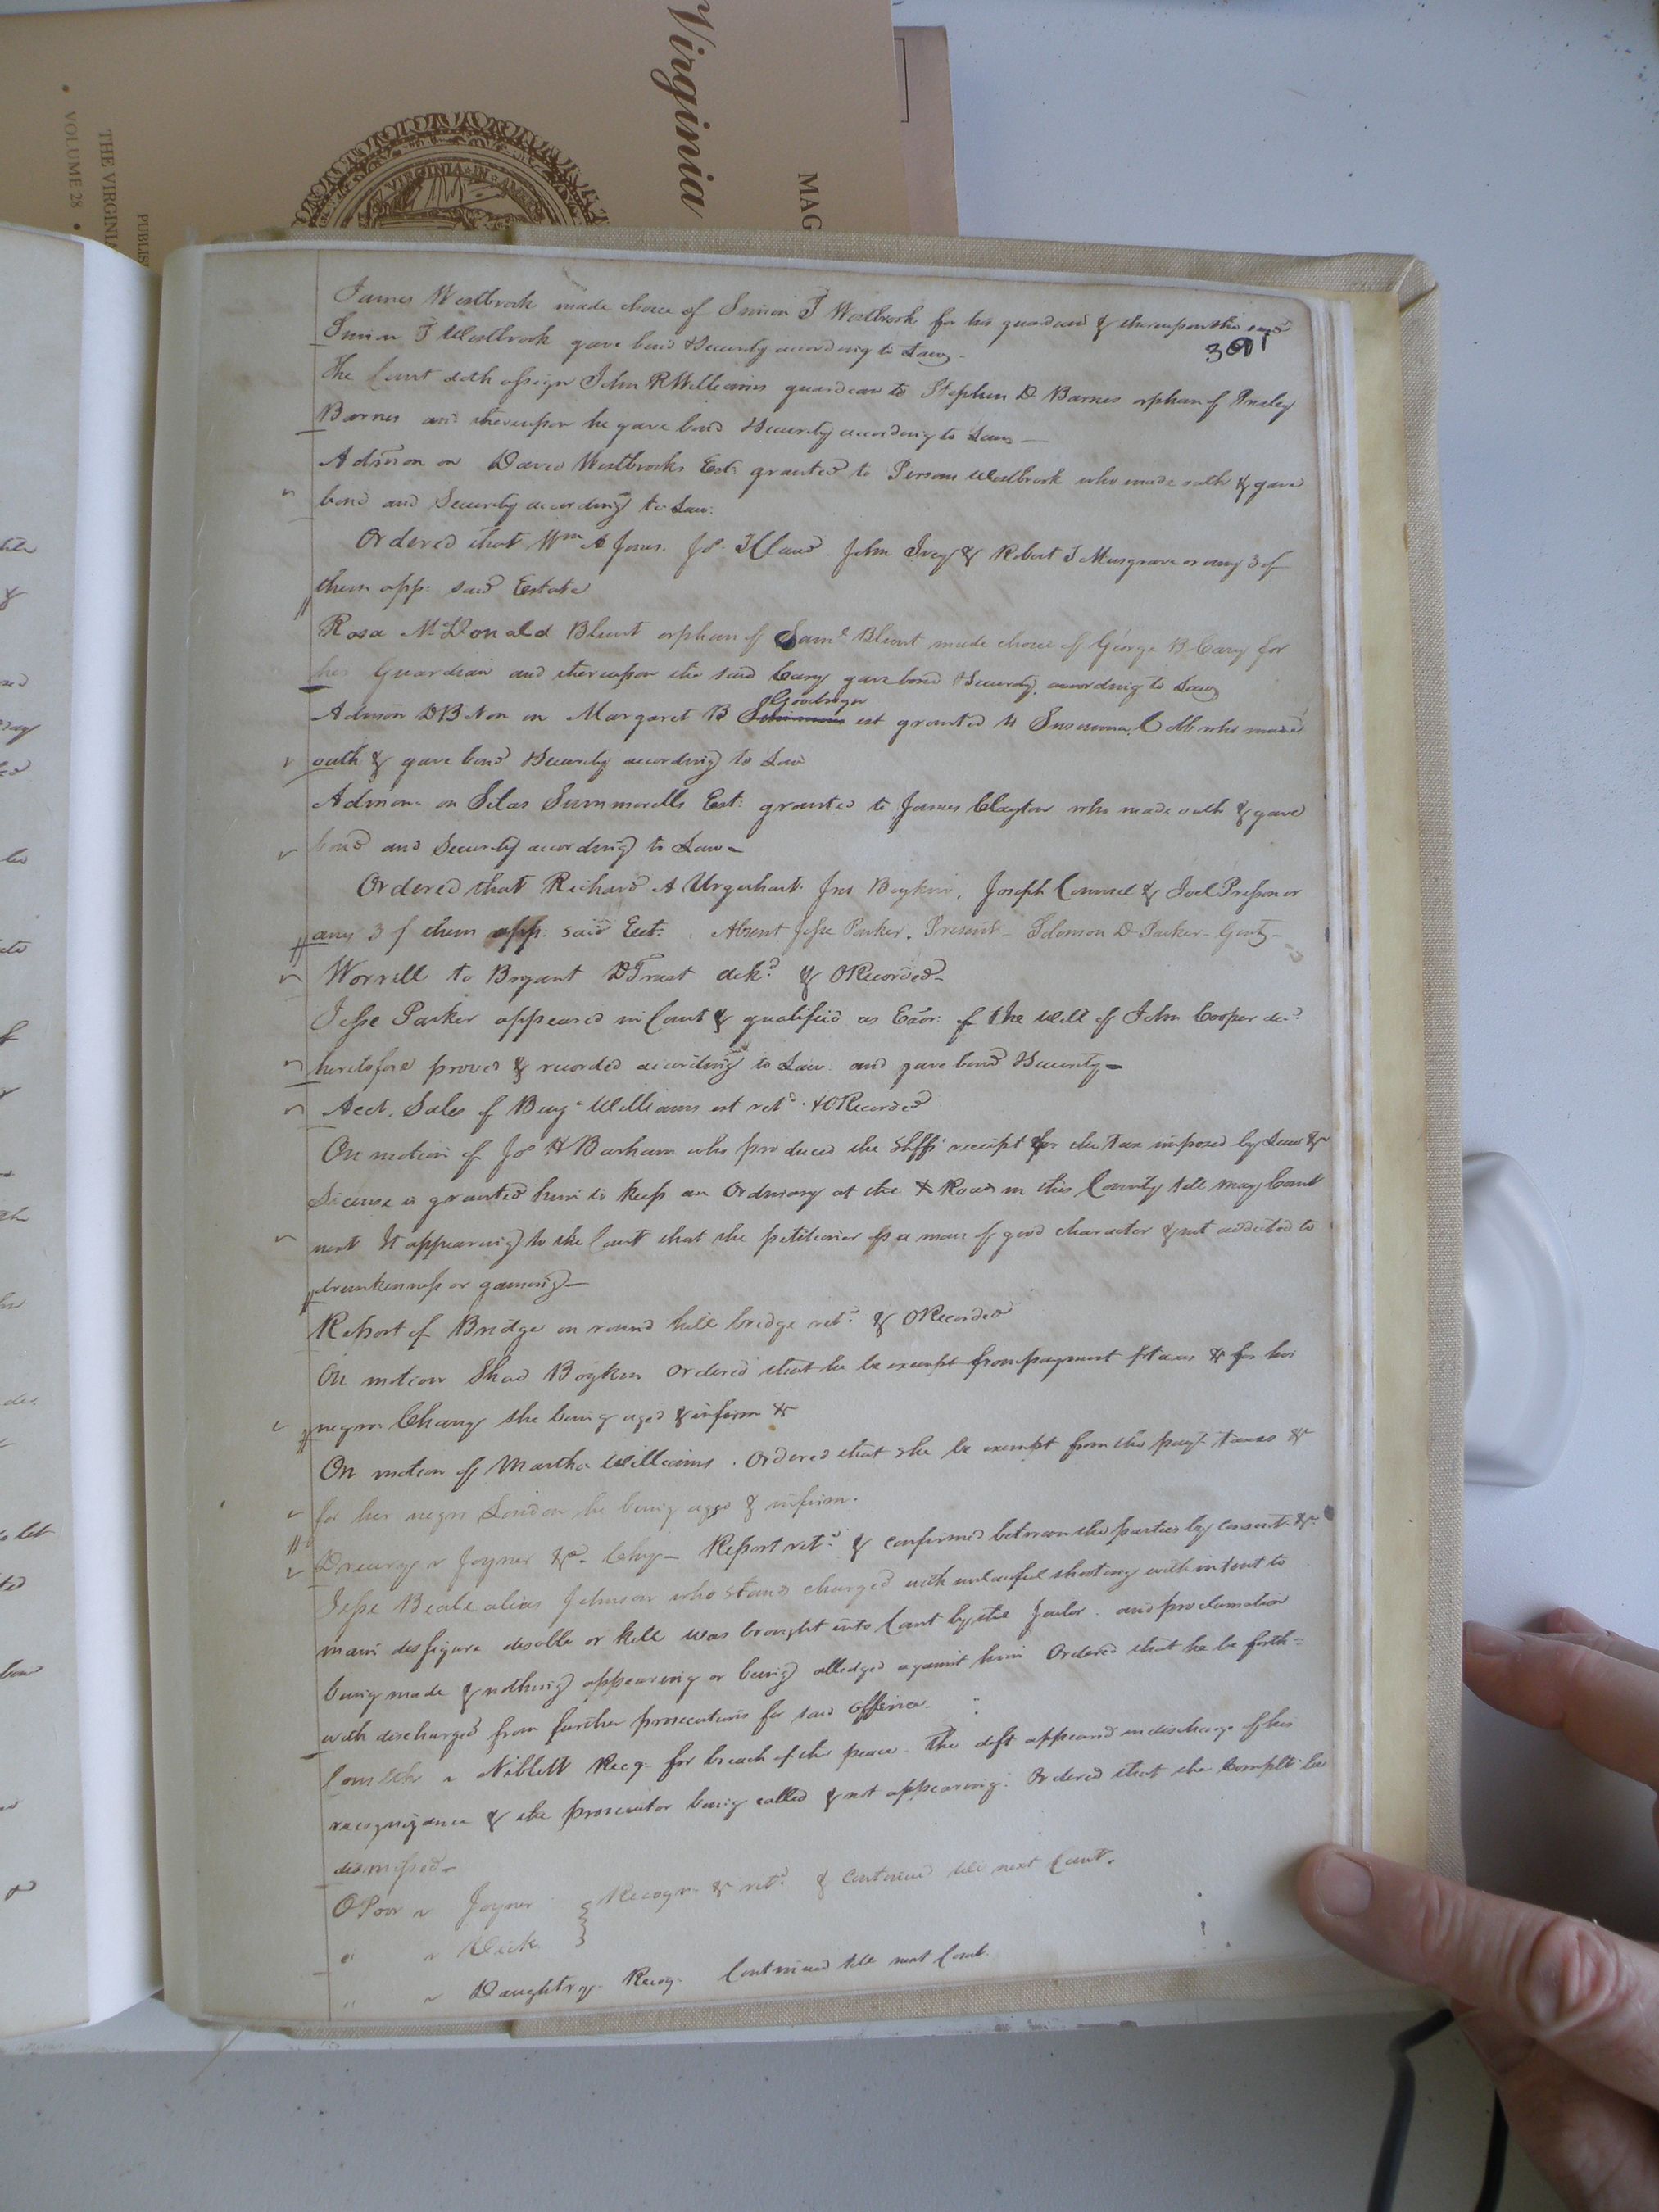 Virginia
MAG
THE VIRGINIA
VOLUME 28
PUBLIS
VIRGINIA IN
James Westbrook made choice of Simion T Westbrook for his guardian & thereupon the said
301
Simion T Westbrook gave bond & Security according to Law.
The Court doth assign John R Williams guardian to Stephen D Barnes orphan of Presley
Barnes and thereupon he gave bond & Security according to Law —
Admon on David Westbrooks Est: granted to Person Westbrook who made oath & gave
bond and Security according to Law.
Ordered that Wm A Jones. Jos. John Ivey & Robert T Musgrave or any 3 of
them app: said Estate
Rosa McDonald Blunt orphan of Saml Blunt made choice of George B Cary for
her Guardian and thereupon the said Cary gave bond & Security according to Law
Goodwyn
Admon DB Non on Margaret B est granted to Susanna Cobb who made
oath & gave bond & Security according to Law
Admon on Silas Summerells Est: granted to James Clayton who made oath & gave
bond and Security according to Law –
Ordered that Richard A Urquhart. Jno Boykin, Joseph Council & Joel Presson or
any 3 of them app: said Est: Absent Jesse Parker. Present – Solomon D Parker – Gent –
Worrell to Bryant DTrust ackd & ORecorded –
Jesse Parker appeared in Court & qualified as Exor: of the will of John Cooper decd
heretofore proved & recorded according to Law and gave bond & Security –
Acct. Sales of Benja Williams est retd & ORecorded
On motion of Jos H Barham who produced the Shffs receipt for the tax imposed by Law &c
License is granted him to keep an Ordinary at the X Roads in this County till may Court
next It appearing to the Court that the petitioner is a man of good character & not addicted to
drunkenness or gaming —
Report of Bridge on round hill bridge retd & ORecorded
On motion Shad Boykin ordered that he be exempt from payment of taxes &c for his
negro Chany she being aged & infirm &c
On motion of Martha Williams. Ordered that she be exempt from the payt taxes &c
for her negro London he being aged & infirm.
Drewry v Joyner &c – Chy – Report retd & confirmed between the parties by consent &c
Jesse Beale alias Johnson who stands charged with unlawful shooting with intent to
maim disfigure disable or kill was brought into Court by the Jailor. and proclamation
being made & nothing appearing or being alledged against him Ordered that he be forth=
with discharged from further prosecutions for said offence.
Comlth v Niblett Recg. for breach of the peace. The deft appeared in discharge of his
recognizance & the prosecutor being called & not appearing. Ordered that the Complt: be
dismissed –
OPoor v Joyner } Recogn. &c retd & Continued till next Court.
" v Dick }
" v Daughtry. Recog. Continued till next Court.